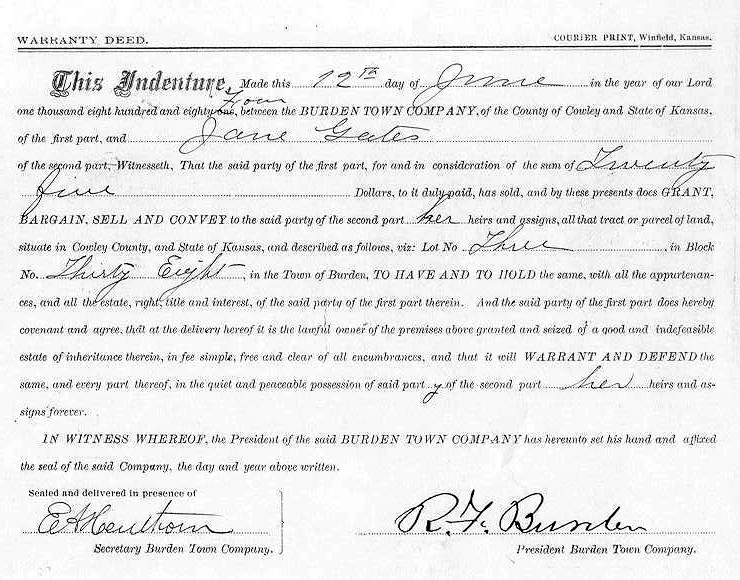 WARRANTY DEED. COURIER PRINT, Winfield, Kansas.
This Indenture, Made this 12th day of June in the year of our Lord
Four
one thousand eight hundred and eighty-one, between the BURDEN TOWN COMPANY, of the County of Cowley and State of Kansas,
of the first part, and Jane Gates
of the second part, Witnesseth, That the said party of the first part, for and in consideration of the sum of Twenty
five Dollars, to it duly paid, has sold, and by these presents does GRANT,
BARGAIN, SELL AND CONVEY to the said party of the second part her heirs and assigns, all that tract or parcel of land,
situate in Cowley County, and State of Kansas, and described as follows, viz: Lot No Three, in Block
No. Thirty Eight, in the Town of Burden, TO HAVE AND TO HOLD the same, with all the appurtenan-
ces, and all the estate, right, title and interest, of the said party of the first part therein. And the said party of the first part does hereby
covenant and agree, that at the delivery hereof it is the lawful owner of the premises above granted and seized of a good and indefeasible
estate of inheritance therein, in fee simple, free and clear of all encumbrances, and that it will WARRANT AND DEFEND the
same, and every part thereof, in the quiet and peaceable possession of said party of the second part her heirs and as-
signs forever.
IN WITNESS WHEREOF, the President of the said BURDEN TOWN COMPANY has hereunto set his hand and affixed
the seal of the said Company, the day and year above written.
Sealed and delivered in presence of
E A Henthorn R. F. Burden
Secretary Burden Town Company. President Burden Town Company.